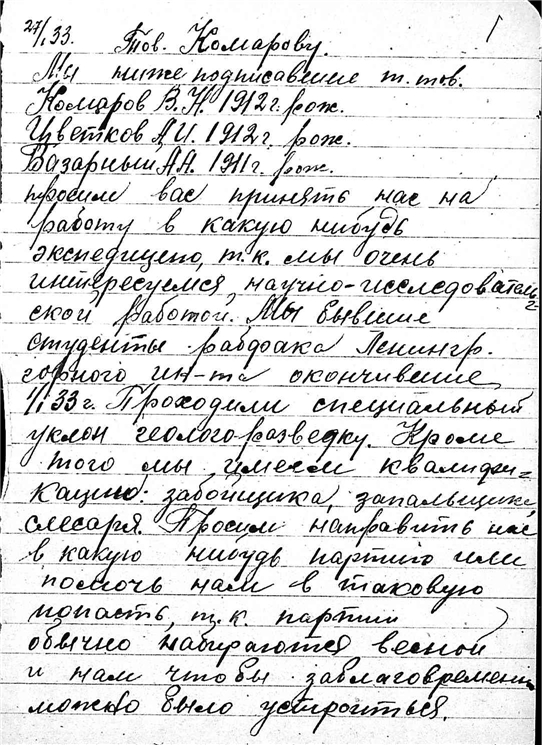 27/I 33. Тов. Комарову. 1
Мы нижеподписавшие т. тов.
Комаров В.Н. 1912 г. рож.
Цветков А.И. 1912 г. рож.
Базарный А.А. 1911 г. рож.
просим вас принять нас на
работу в какую нибудь
экспедицию, т.к. мы очень
интересуемся научно-исследователь=
ской работой. Мы бывшие
студенты рабфака Ленингр.
горного ин-та окончившие
1/I 33 г. Проходили специальный
уклон геолого-разведку. Кроме
того мы имеем квалифи=
кацию: забойщика, запальщика,
слесаря. Просим направить нас
в какую нибудь партию или
помочь нам в таковую
попасть, т.к. партии
обычно набираются весной
и нам чтобы заблаговременно
можно было устроиться.